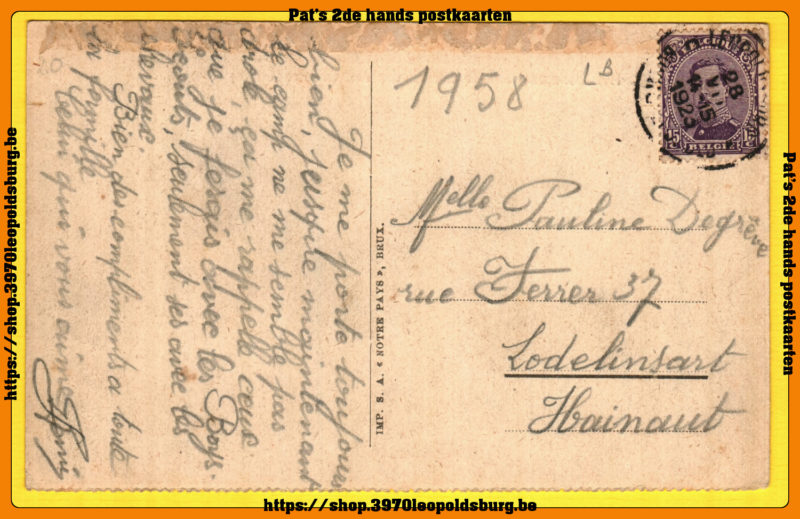 Pat's 2de hands postkaarten
1958
LB
28
1923
15 BELGIË 15
Je me porte toujours
bien, jusque maintenant
le camp ne me semble pas
drôle, ça me rappelle ceux
que je ferais avec les Boys-
Scouts, seulement ici avec les
chevaux
Bien des compliments a toute
la famille
Celui qui vous aime
IMP. S. A. « NOTRE PAYS », BRUX.
Melle Pauline Degrève
rue Ferrer 37
Lodelinsart
Hainaut
https://shop.3970leopoldsburg.be
Pat's 2de hands postkaarten
https://shop.3970leopoldsburg.be